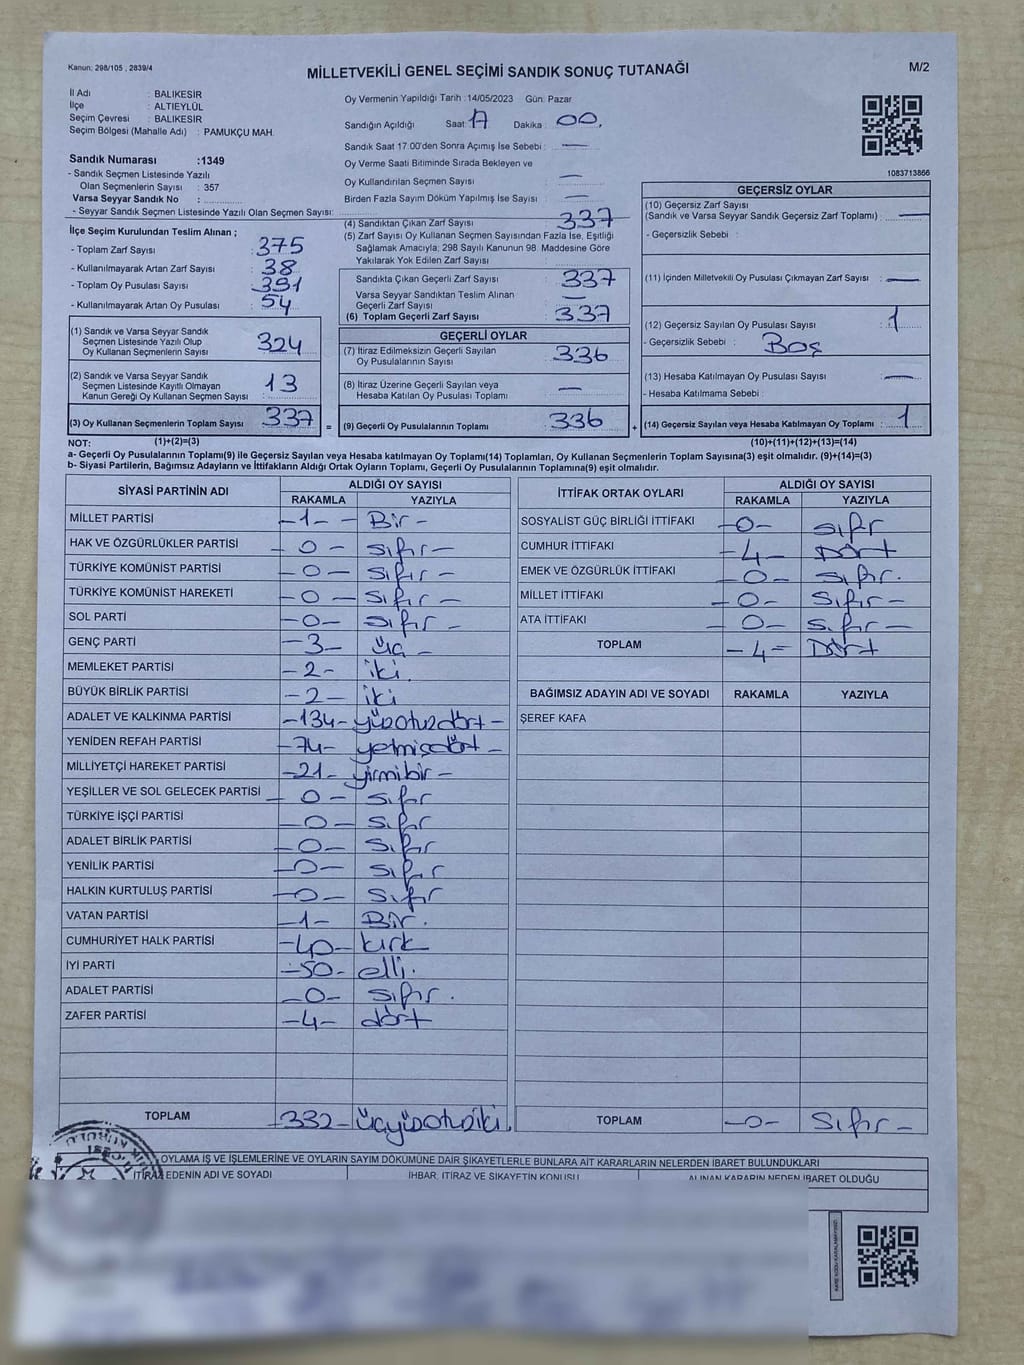 Kanun: 298/105 , 2839/4
MİLLETVEKİLİ GENEL SEÇİMİ SANDIK SONUÇ TUTANAĞI
M/2
İl Adı : BALIKESİR
İlçe : ALTIEYLÜL
Seçim Çevresi : BALIKESİR
Seçim Bölgesi (Mahalle Adı) : PAMUKÇU MAH.
Sandık Numarası :1349
- Sandık Seçmen Listesinde Yazılı
Olan Seçmenlerin Sayısı : 357
Varsa Seyyar Sandık No :
- Seyyar Sandık Seçmen Listesinde Yazılı Olan Seçmen Sayısı:
Oy Vermenin Yapıldığı Tarih :14/05/2023 Gün: Pazar
Sandığın Açıldığı Saat 17 Dakika 00.
Sandık Saat 17:00'den Sonra Açımış İse Sebebi : —
Oy Verme Saati Bitiminde Sırada Bekleyen ve
Oy Kullandırılan Seçmen Sayısı —
Birden Fazla Sayım Döküm Yapılmış İse Sayısı : —
1083713866
İlçe Seçim Kurulundan Teslim Alınan ;
- Toplam Zarf Sayısı : 375
- Kullanılmayarak Artan Zarf Sayısı : 38
- Toplam Oy Pusulası Sayısı : 391
- Kullanılmayarak Artan Oy Pusulası : 54
(1) Sandık ve Varsa Seyyar Sandık
Seçmen Listesinde Yazılı Olup
Oy Kullanan Seçmenlerin Sayısı : 324
(2) Sandık ve Varsa Seyyar Sandık
Seçmen Listesinde Kayıtlı Olmayan
Kanun Gereği Oy Kullanan Seçmen Sayısı : 13
(3) Oy Kullanan Seçmenlerin Toplam Sayısı : 337
(4) Sandıktan Çıkan Zarf Sayısı 337
(5) Zarf Sayısı Oy Kullanan Seçmen Sayısından Fazla İse, Eşitliği
Sağlamak Amacıyla, 298 Sayılı Kanunun 98. Maddesine Göre
Yakılarak Yok Edilen Zarf Sayısı :
Sandıkta Çıkan Geçerli Zarf Sayısı : 337
Varsa Seyyar Sandıktan Teslim Alınan
Geçerli Zarf Sayısı : —
(6) Toplam Geçerli Zarf Sayısı : 337
GEÇERLİ OYLAR
(7) İtiraz Edilmeksizin Geçerli Sayılan
Oy Pusulalarının Sayısı : 336
(8) İtiraz Üzerine Geçerli Sayılan veya
Hesaba Katılan Oy Pusulası Toplamı : —
= (9) Geçerli Oy Pusulalarının Toplamı : 336
GEÇERSİZ OYLAR
(10) Geçersiz Zarf Sayısı
(Sandık ve Varsa Seyyar Sandık Geçersiz Zarf Toplamı) : —
- Geçersizlik Sebebi :
(11) İçinden Milletvekili Oy Pusulası Çıkmayan Zarf Sayısı : —
(12) Geçersiz Sayılan Oy Pusulası Sayısı : 1
- Geçersizlik Sebebi : Boş
(13) Hesaba Katılmayan Oy Pusulası Sayısı : —
- Hesaba Katılmama Sebebi :
+ (14) Geçersiz Sayılan veya Hesaba Katılmayan Oy Toplamı : 1
NOT: (1)+(2)=(3) (10)+(11)+(12)+(13)=(14)
a- Geçerli Oy Pusulalarının Toplamı(9) ile Geçersiz Sayılan veya Hesaba katılmayan Oy Toplamı(14) Toplamları, Oy Kullanan Seçmenlerin Toplam Sayısına(3) eşit olmalıdır. (9)+(14)=(3)
b- Siyasi Partilerin, Bağımsız Adayların ve İttifakların Aldığı Ortak Oyların Toplamı, Geçerli Oy Pusulalarının Toplamına(9) eşit olmalıdır.
SİYASİ PARTİNİN ADI ALDIĞI OY SAYISI
RAKAMLA YAZIYLA
MİLLET PARTİSİ -1- - Bir -
HAK VE ÖZGÜRLÜKLER PARTİSİ - 0 - sıfır -
TÜRKİYE KOMÜNİST PARTİSİ - 0 - sıfır -
TÜRKİYE KOMÜNİST HAREKETİ - 0 - sıfır -
SOL PARTİ - 0 - sıfır -
GENÇ PARTİ - 3 - üç -
MEMLEKET PARTİSİ - 2 - iki.
BÜYÜK BİRLİK PARTİSİ - 2 - iki
ADALET VE KALKINMA PARTİSİ -134- yüzotuzdört -
YENİDEN REFAH PARTİSİ -74- yetmişdört -
MİLLİYETÇİ HAREKET PARTİSİ -21- yirmibir -
YEŞİLLER VE SOL GELECEK PARTİSİ - 0 - sıfır
TÜRKİYE İŞÇİ PARTİSİ - 0 - sıfır
ADALET BİRLİK PARTİSİ - 0 - sıfır
YENİLİK PARTİSİ - 0 - sıfır
HALKIN KURTULUŞ PARTİSİ - 0 - sıfır
VATAN PARTİSİ - 1 - Bir.
CUMHURİYET HALK PARTİSİ -40- kırk
İYİ PARTİ -50- elli.
ADALET PARTİSİ - 0 - sıfır.
ZAFER PARTİSİ - 4 - dört
TOPLAM -332- üçyüzotuziki.
İTTİFAK ORTAK OYLARI ALDIĞI OY SAYISI
RAKAMLA YAZIYLA
SOSYALİST GÜÇ BİRLİĞİ İTTİFAKI - 0 - sıfır
CUMHUR İTTİFAKI - 4 - Dört
EMEK VE ÖZGÜRLÜK İTTİFAKI - 0 - sıfır.
MİLLET İTTİFAKI - 0 - sıfır -
ATA İTTİFAKI - 0 - sıfır -
TOPLAM - 4 - Dört
BAĞIMSIZ ADAYIN ADI VE SOYADI RAKAMLA YAZIYLA
ŞEREF KAFA
TOPLAM - 0 - Sıfır -
OYLAMA İŞ VE İŞLEMLERİNE VE OYLARIN SAYIM DÖKÜMÜNE DAİR ŞİKAYETLERLE BUNLARA AİT KARARLARIN NELERDEN İBARET BULUNDUKLARI
İTİRAZ EDENİN ADI VE SOYADI İHBAR, İTİRAZ VE ŞİKAYETİN KONUSU ALINAN KARARIN NEDEN İBARET OLDUĞU